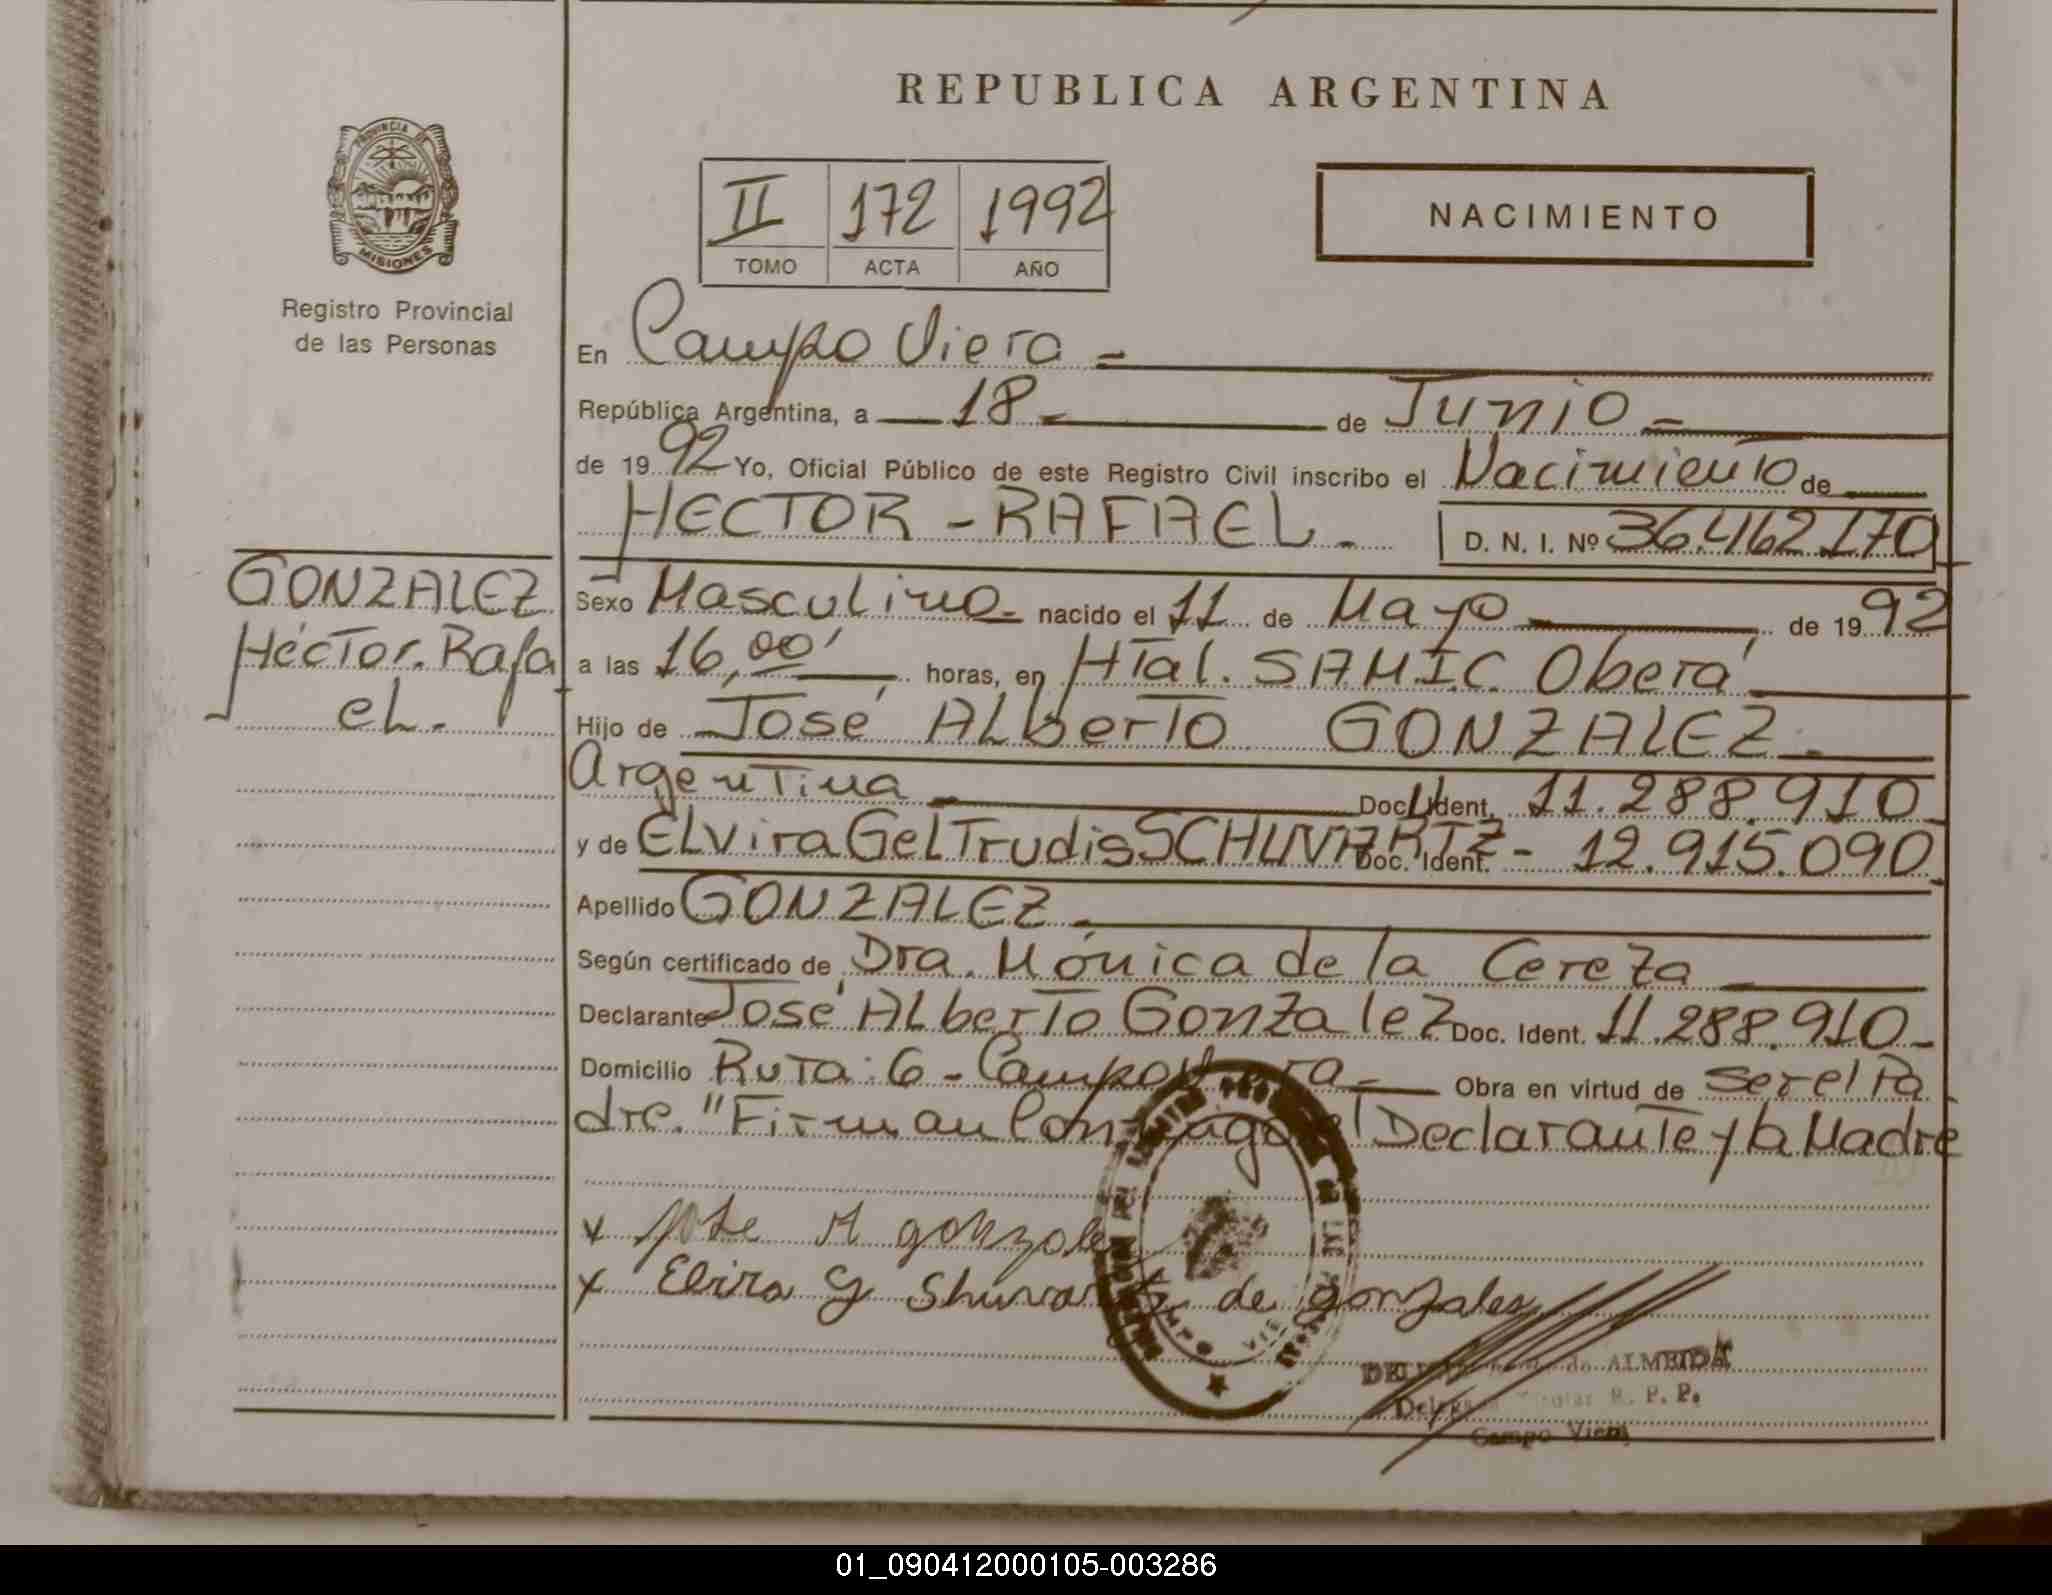 REPUBLICA ARGENTINA
PROVINCIA DE
MISIONES
Registro Provincial
de las Personas
II 172 1992
TOMO ACTA AÑO
NACIMIENTO
En Campo Viera =
República Argentina, a — 18 - de Junio =
de 1992 Yo, Oficial Público de este Registro Civil inscribo el Nacimiento de
HECTOR - RAFAEL - D. N. I. Nº 36.462.170
GONZALEZ
Héctor. Rafa
el.
Sexo Masculino - nacido el 11 de Mayo de 1992
a las 16,00' horas, en Htal. SAMIC. Oberá
Hijo de José ALberto GONZALEZ -
Argentina Doc. Ident. 11.288.910
y de ELvira GeLTrudis SCHUVARTZ Doc. Ident. - 12.915.090
Apellido GONZALEZ
Según certificado de Dra. Mónica de la Cereza
Declarante José ALberto Gonzalez Doc. Ident. 11.288.910 -
Domicilio Ruta: 6 - Campo Viera - Obra en virtud de ser el Pa
dre. "Firman Conmigo el Declarante y la Madre
x Jose A gonzale
x Elvira G Shuvartz de gonzales
ALMEIDA
R. P. P.
Campo Viera
01_090412000105-003286